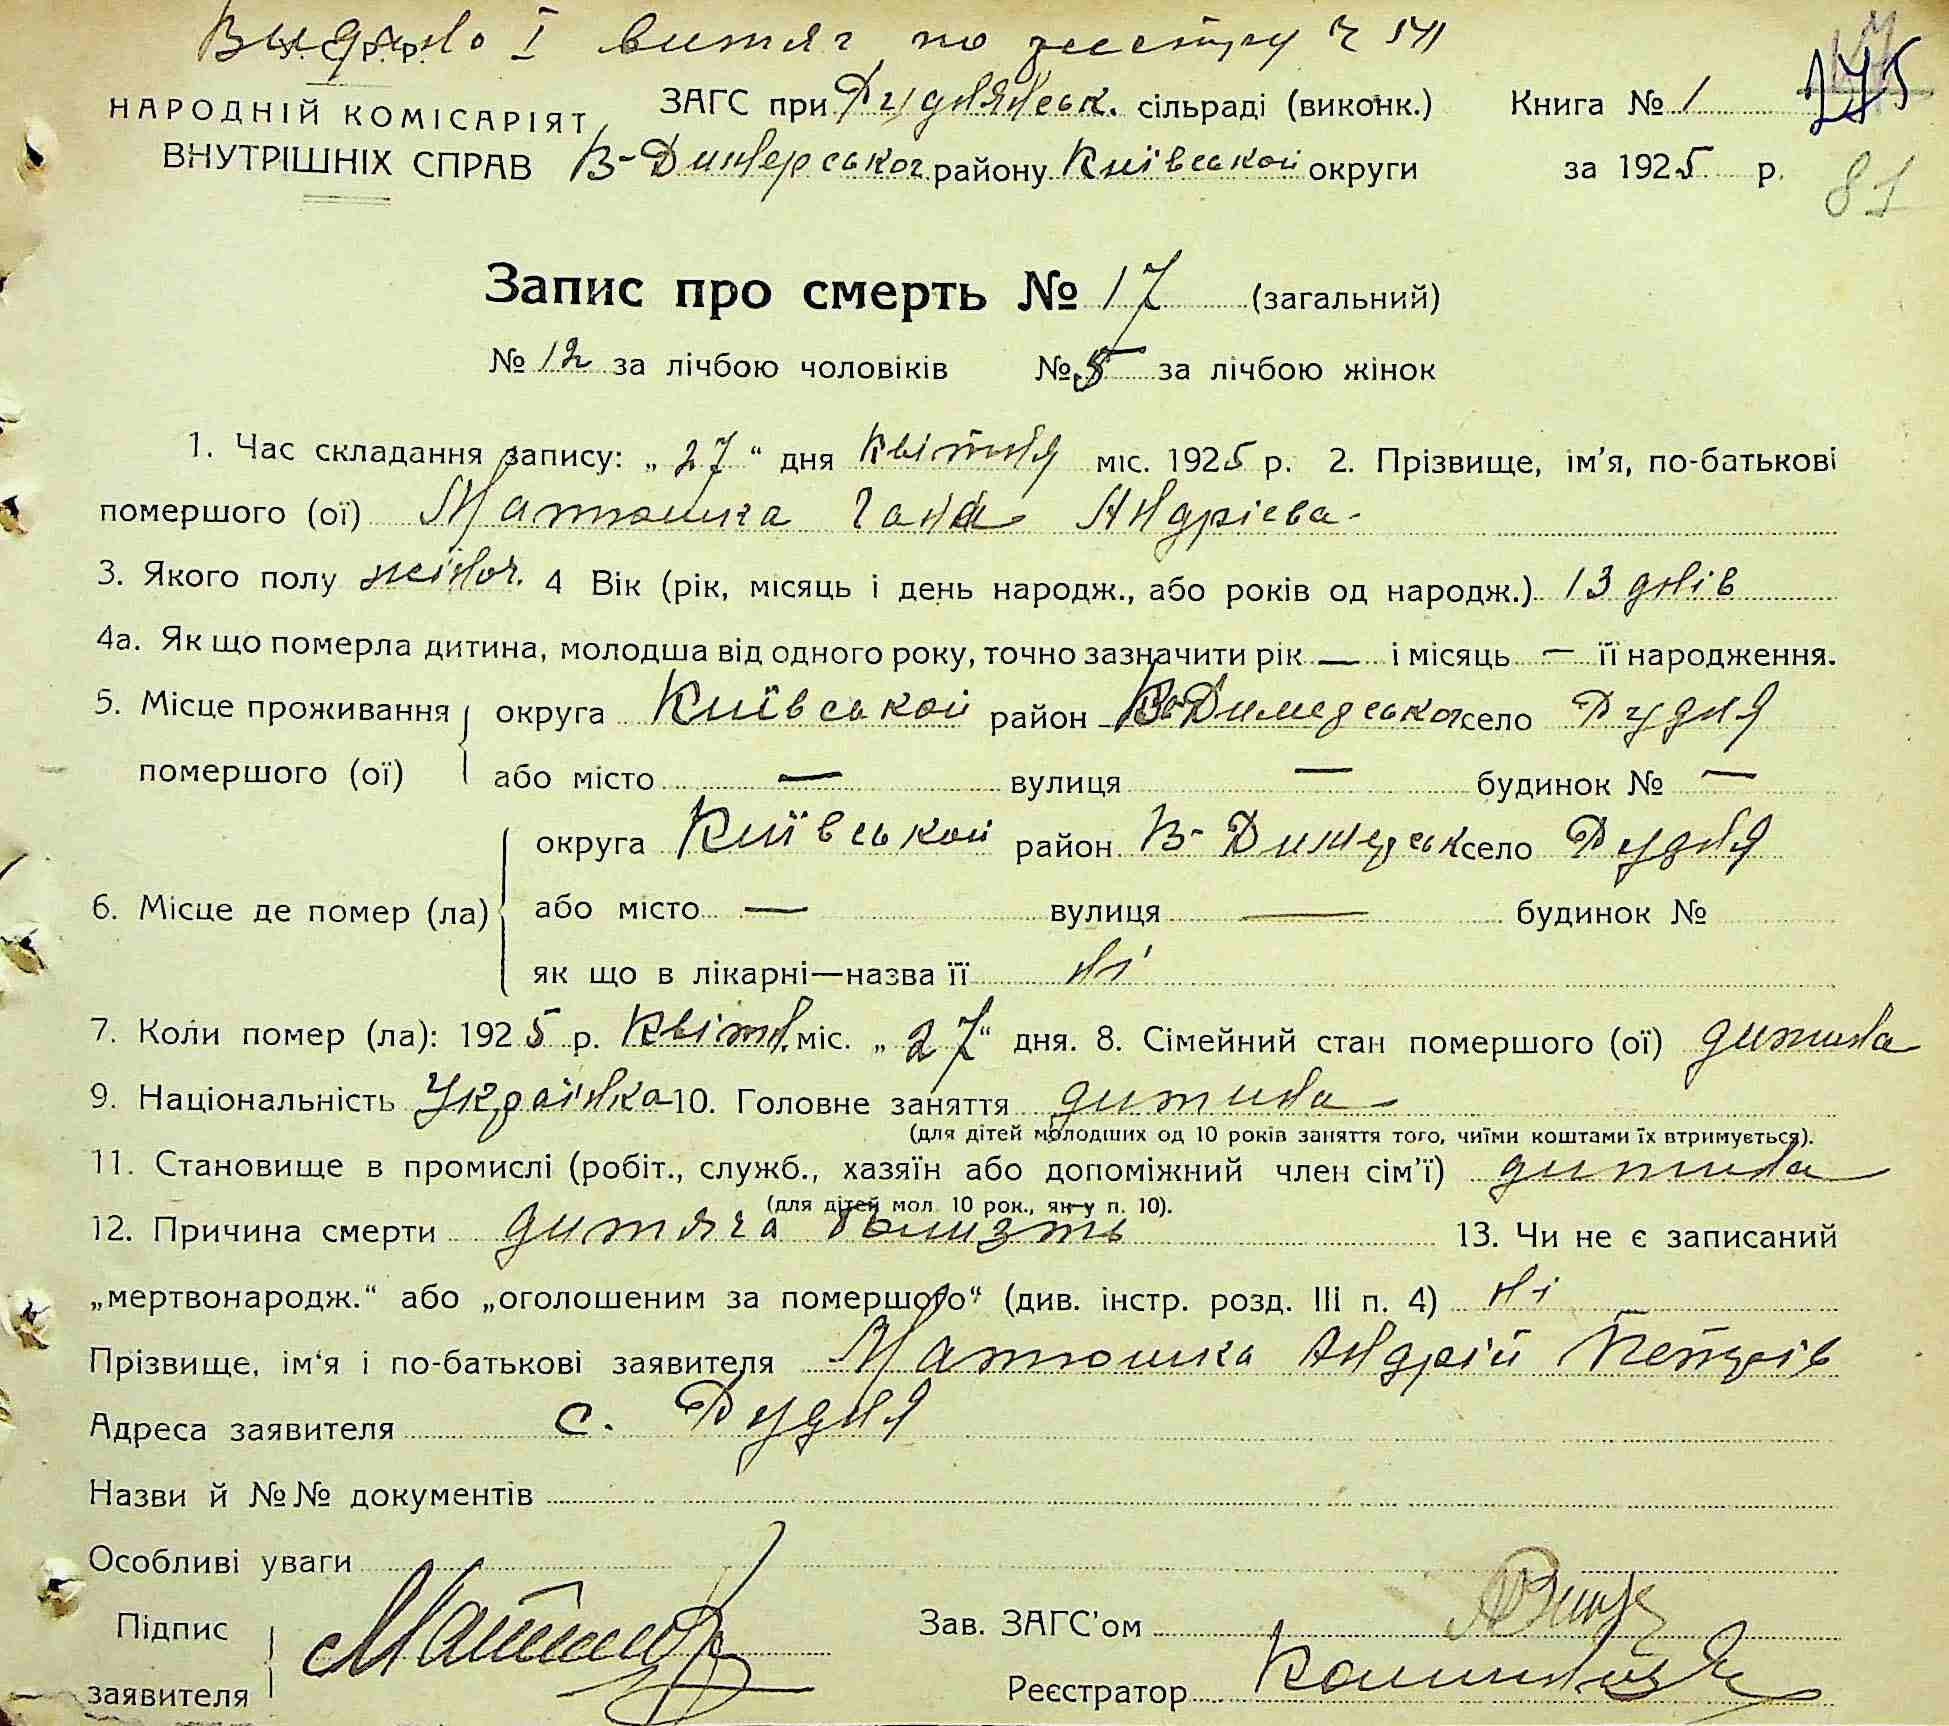 Видано І витяг по реєстру Ч 541
У. С. Р. Р.
НАРОДНІЙ КОМІСАРІЯТ ЗАГС при Руднянськ. сільраді (виконк.) Книга № 1 175
ВНУТРІШНІХ СПРАВ В-Димерського району Київської округи за 1925 р. 81
Запис про смерть № 17 (загальний)
№ 12 за лічбою чоловіків № 5 за лічбою жінок
1. Час складання запису: „27“ дня квітня міс. 1925 р. 2. Прізвище, ім'я, по-батькові
помершого (ої) Матюшка Гана Андрієва
3. Якого полу жіноч. 4 Вік (рік, місяць і день народж., або років од народж.) 13 днів
4а. Як що померла дитина, молодша від одного року, точно зазначити рік — і місяць — її народження.
5. Місце проживання округа Київської район В-Димерського село Рудня
помершого (ої) або місто — вулиця — будинок № —
округа Київської район В-Димерськ село Рудня
6. Місце де помер (ла) або місто — вулиця — будинок №
як що в лікарні—назва її ні
7. Коли помер (ла): 1925 р. Квітн. міс. „27“ дня. 8. Сімейний стан помершого (ої) дитина
9. Національність Українка 10. Головне заняття дитина
(для дітей молодших од 10 років заняття того, чиїми коштами їх втримується).
11. Становище в промислі (робіт., служб., хазяїн або допоміжний член сім'ї) дитина
(для дітей мол. 10 рок., як у п. 10).
12. Причина смерти дитяча болизть 13. Чи не є записаний
„мертвонародж.“ або „оголошеним за помершого“ (див. інстр. розд. III п. 4) ні
Прізвище, ім'я і по-батькові заявителя Матюшка Андрій Петрів
Адреса заявителя с. Рудня
Назви й №№ документів
Особливі уваги
Підпис Зав. ЗАГС'ом
заявителя Реєстратор